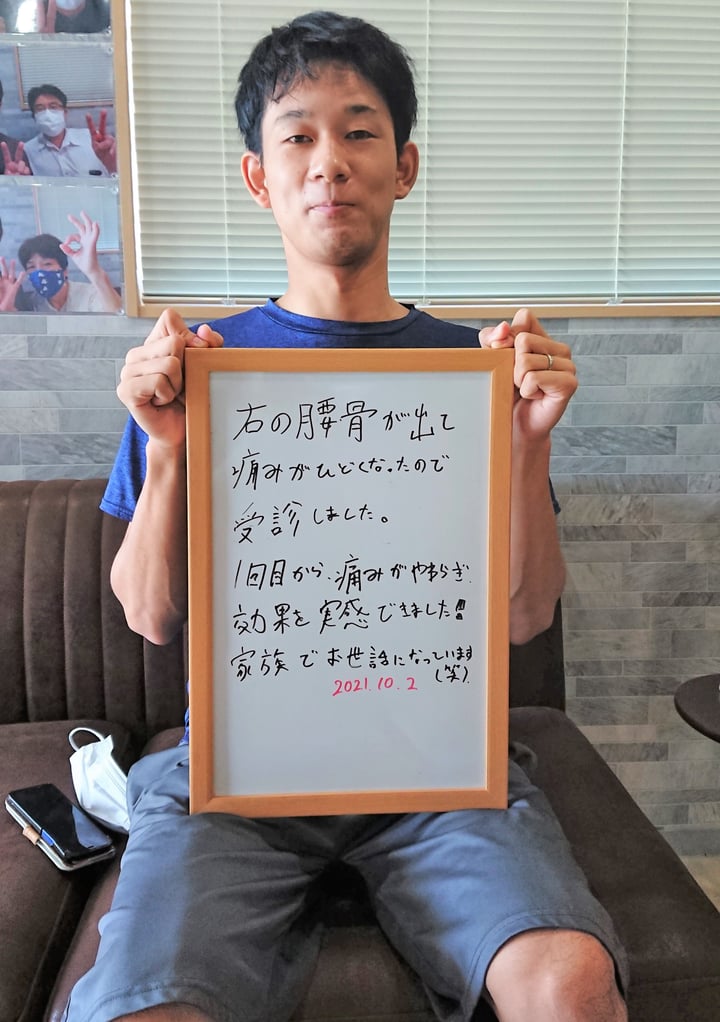 右の腰骨が出て
痛みがひどくなったので
受診しました。
1回目から、痛みがやわらぎ
効果を実感できました!!
家族でお世話になっています
(笑)
2021.10.2